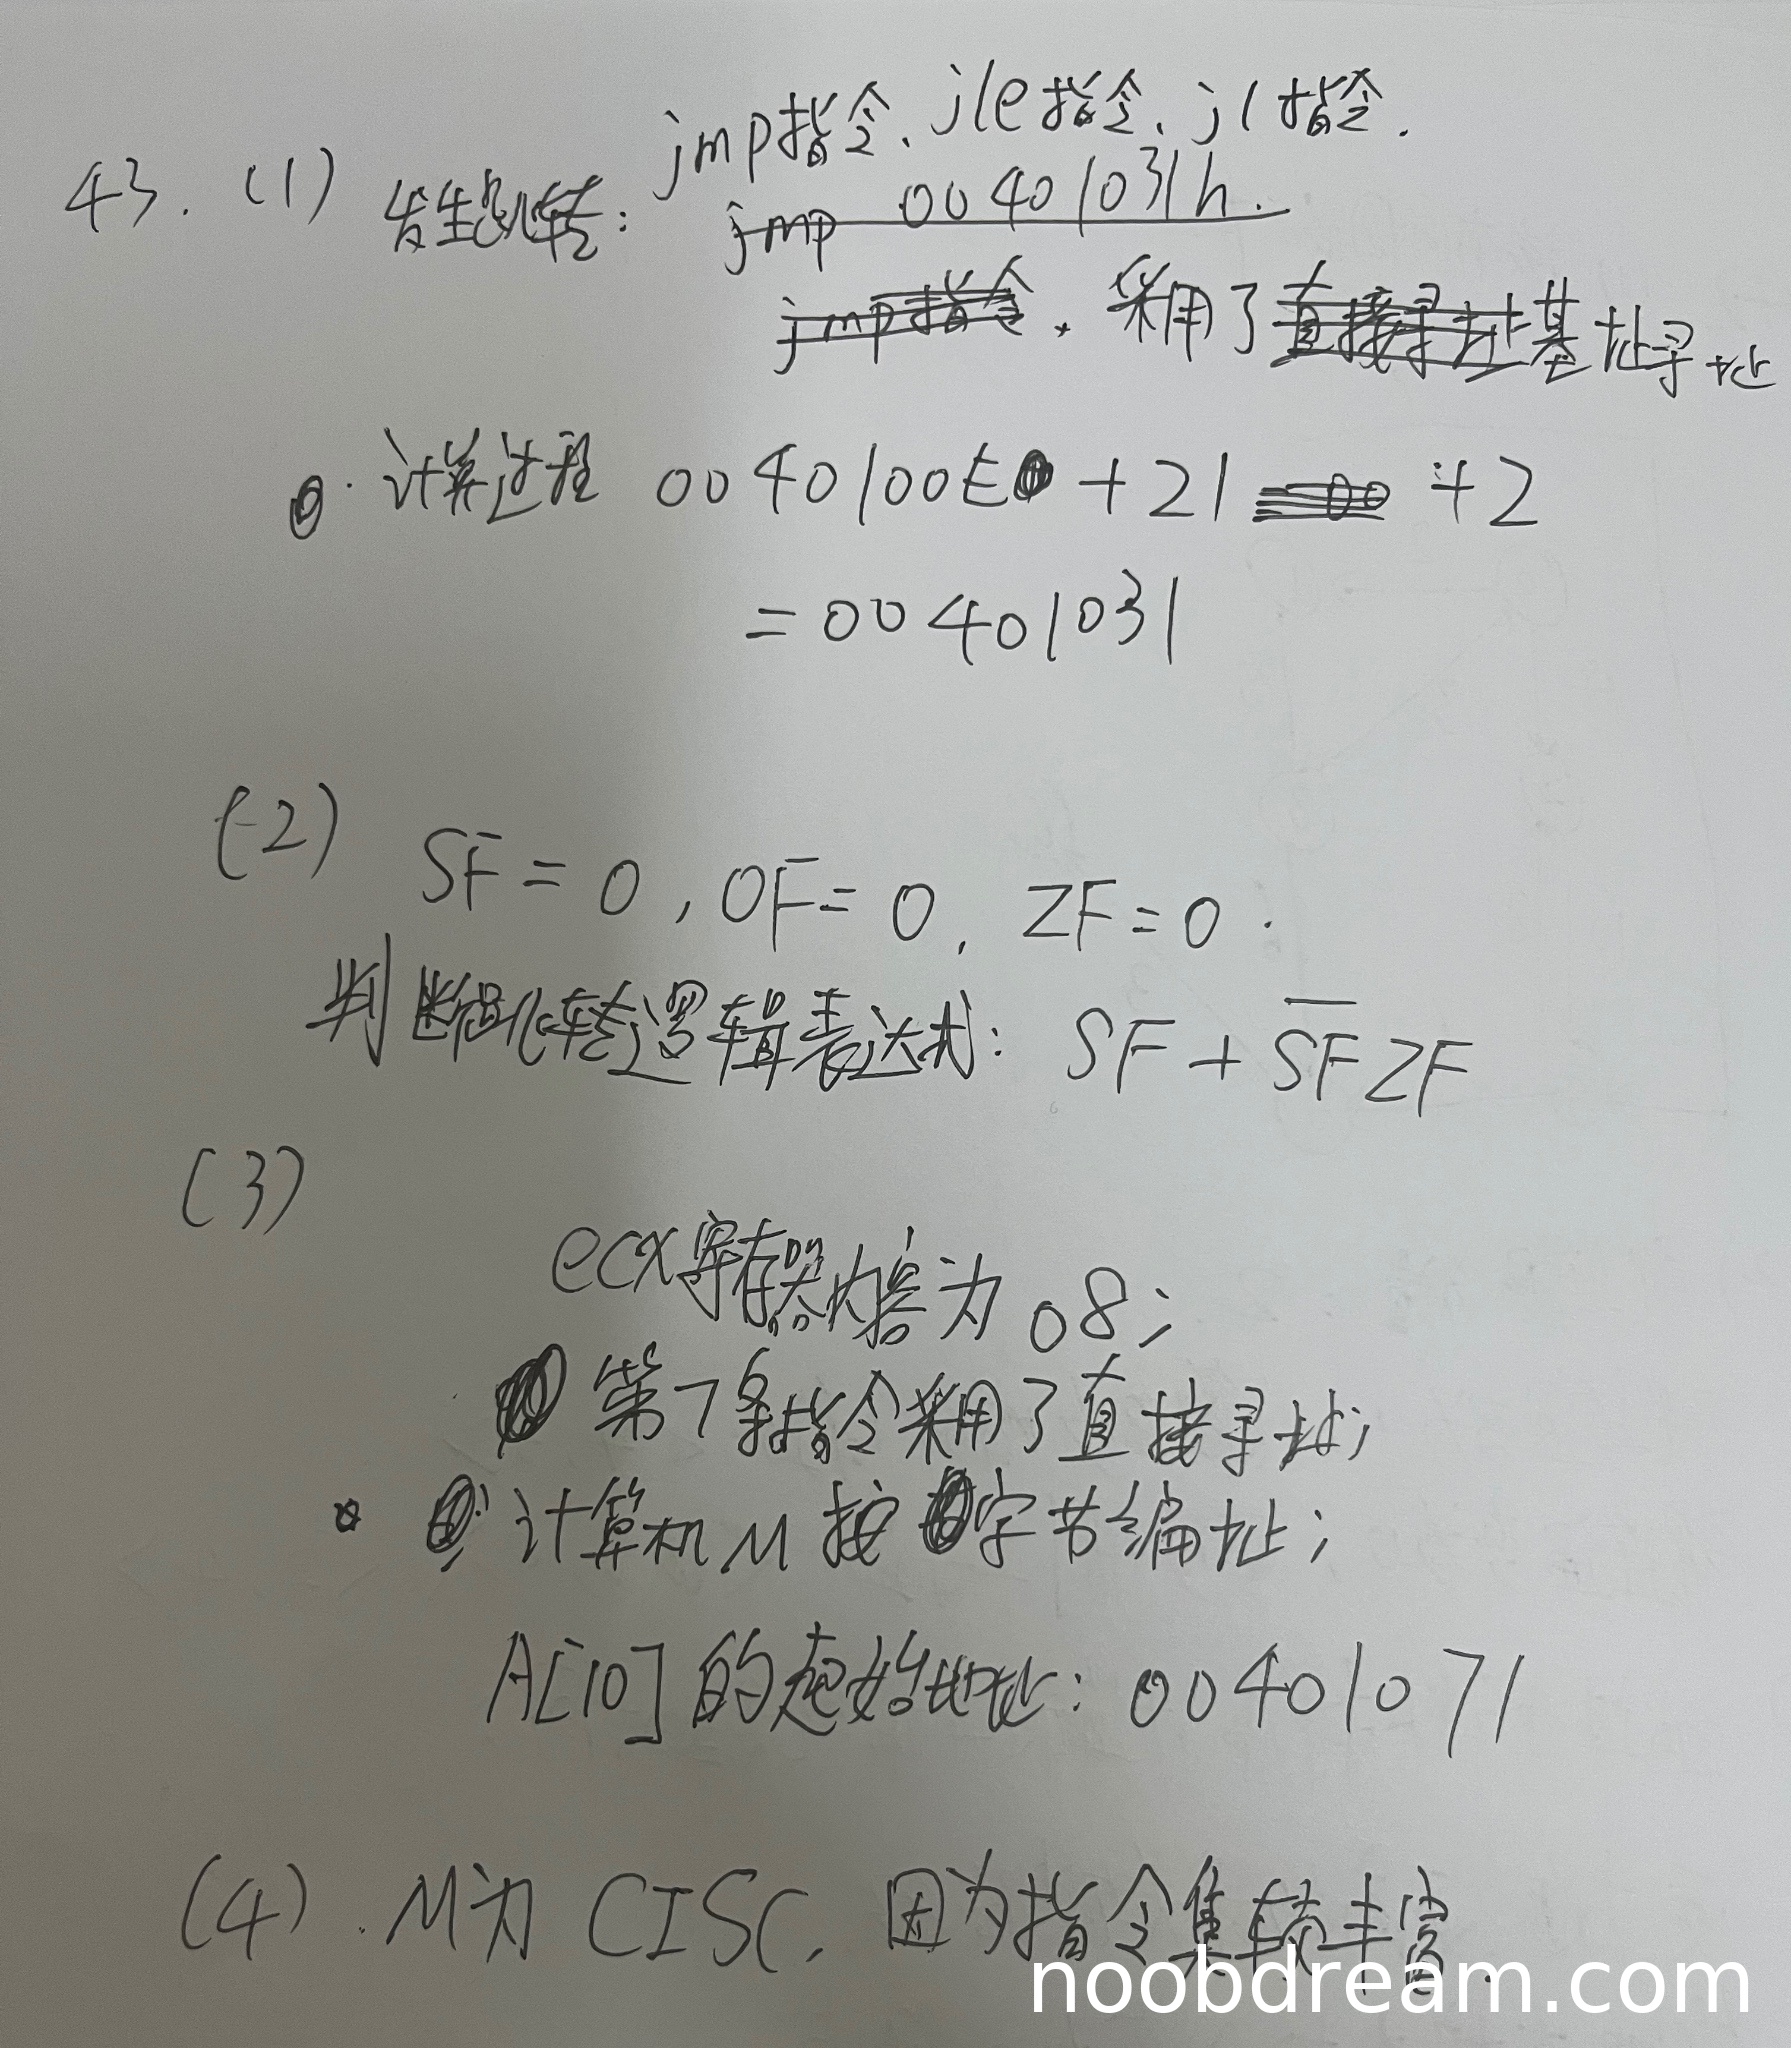 43. (1) 发生跳转: jmp指令、jle指令、jl指令.
jmp 00401031h.
jmp指令. 采用了直接寻址基址寻址
计算过程 0040100E + 21 +2
= 00401031
(2) SF = 0, OF = 0, ZF = 0.
判断跳转逻辑表达式: SF + S̅F̅ ZF
(3)
ecx寄存器内容为 08;
第7条指令采用了直接寻址;
计算机M按字节编址;
A[10]的起始地址: 00401071
(4). M为 CISC, 因为指令集较丰富.
noobdream.com